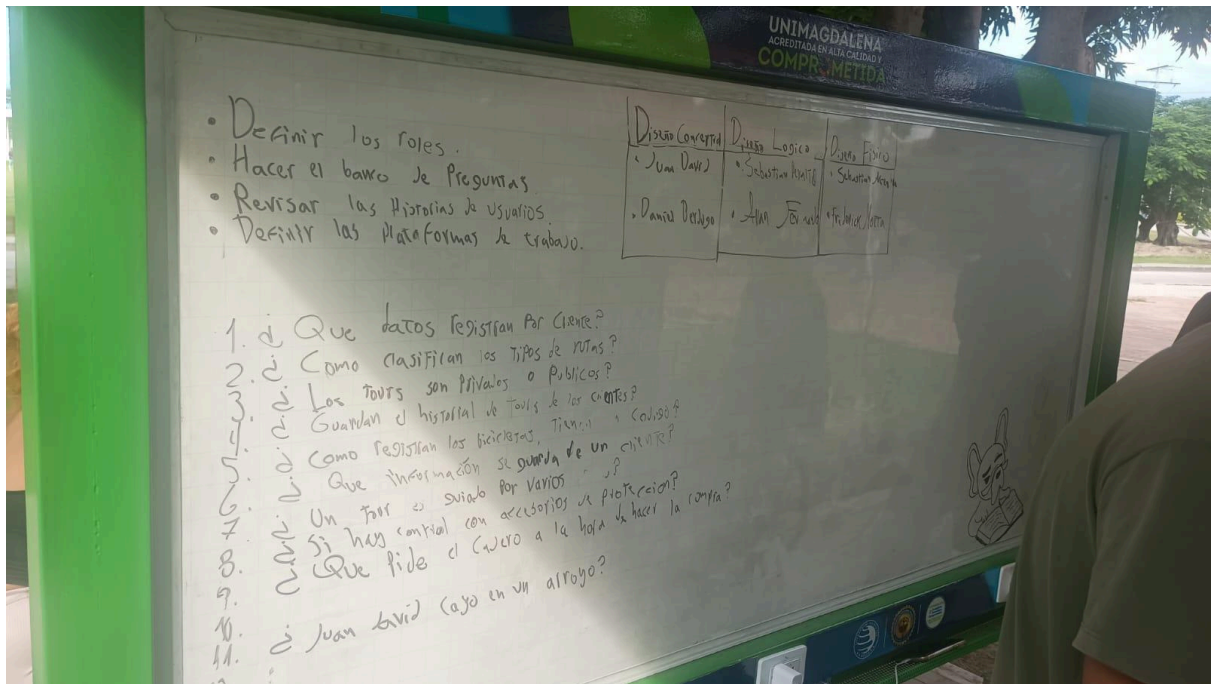 UNIMAGDALENA
ACREDITADA EN ALTA CALIDAD Y
COMPROMETIDA
• Definir los roles.
• Hacer el banco de Preguntas
• Revisar las Historias de usuarios.
• Definir las Plataformas de trabajo.
Diseño Conceptual
• Juan David
• Daniel
Diseño Logico
• Sebastian
• Alan
Diseño Fisico
• Sebastian
1. ¿ Que datos registran Por Cliente?
2. ¿ Como clasifican los Tipos de rutas?
3. ¿ Los Tours son Privados o Publicos?
4. ¿ Guardan el historial de Tours de los clientes?
5. ¿ Como registran las bicicletas, Tienen Codigo?
6. ¿ Que información se guarda de un cliente?
7. ¿ Un Tour es guiado Por varios ?
8. ¿ Si hay control con accesorios de proteccion?
9. ¿ Que Pide el Cajero a la hora de hacer la compra?
10.
11. ¿ Juan david Cayo en un arroyo?